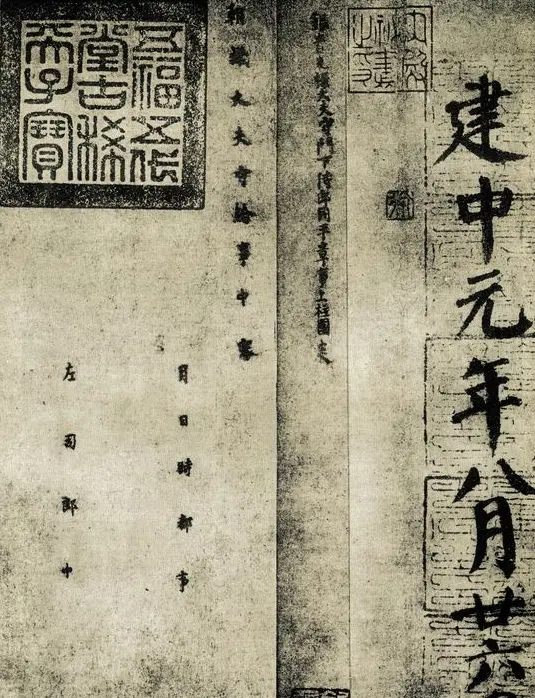 建中元年八月廿六
銀青光祿大夫守門下侍郎同平章事上柱國炎
朝議大夫守給事中審
五福五代
堂古稀
天子寶
月日時都事
左司郎中